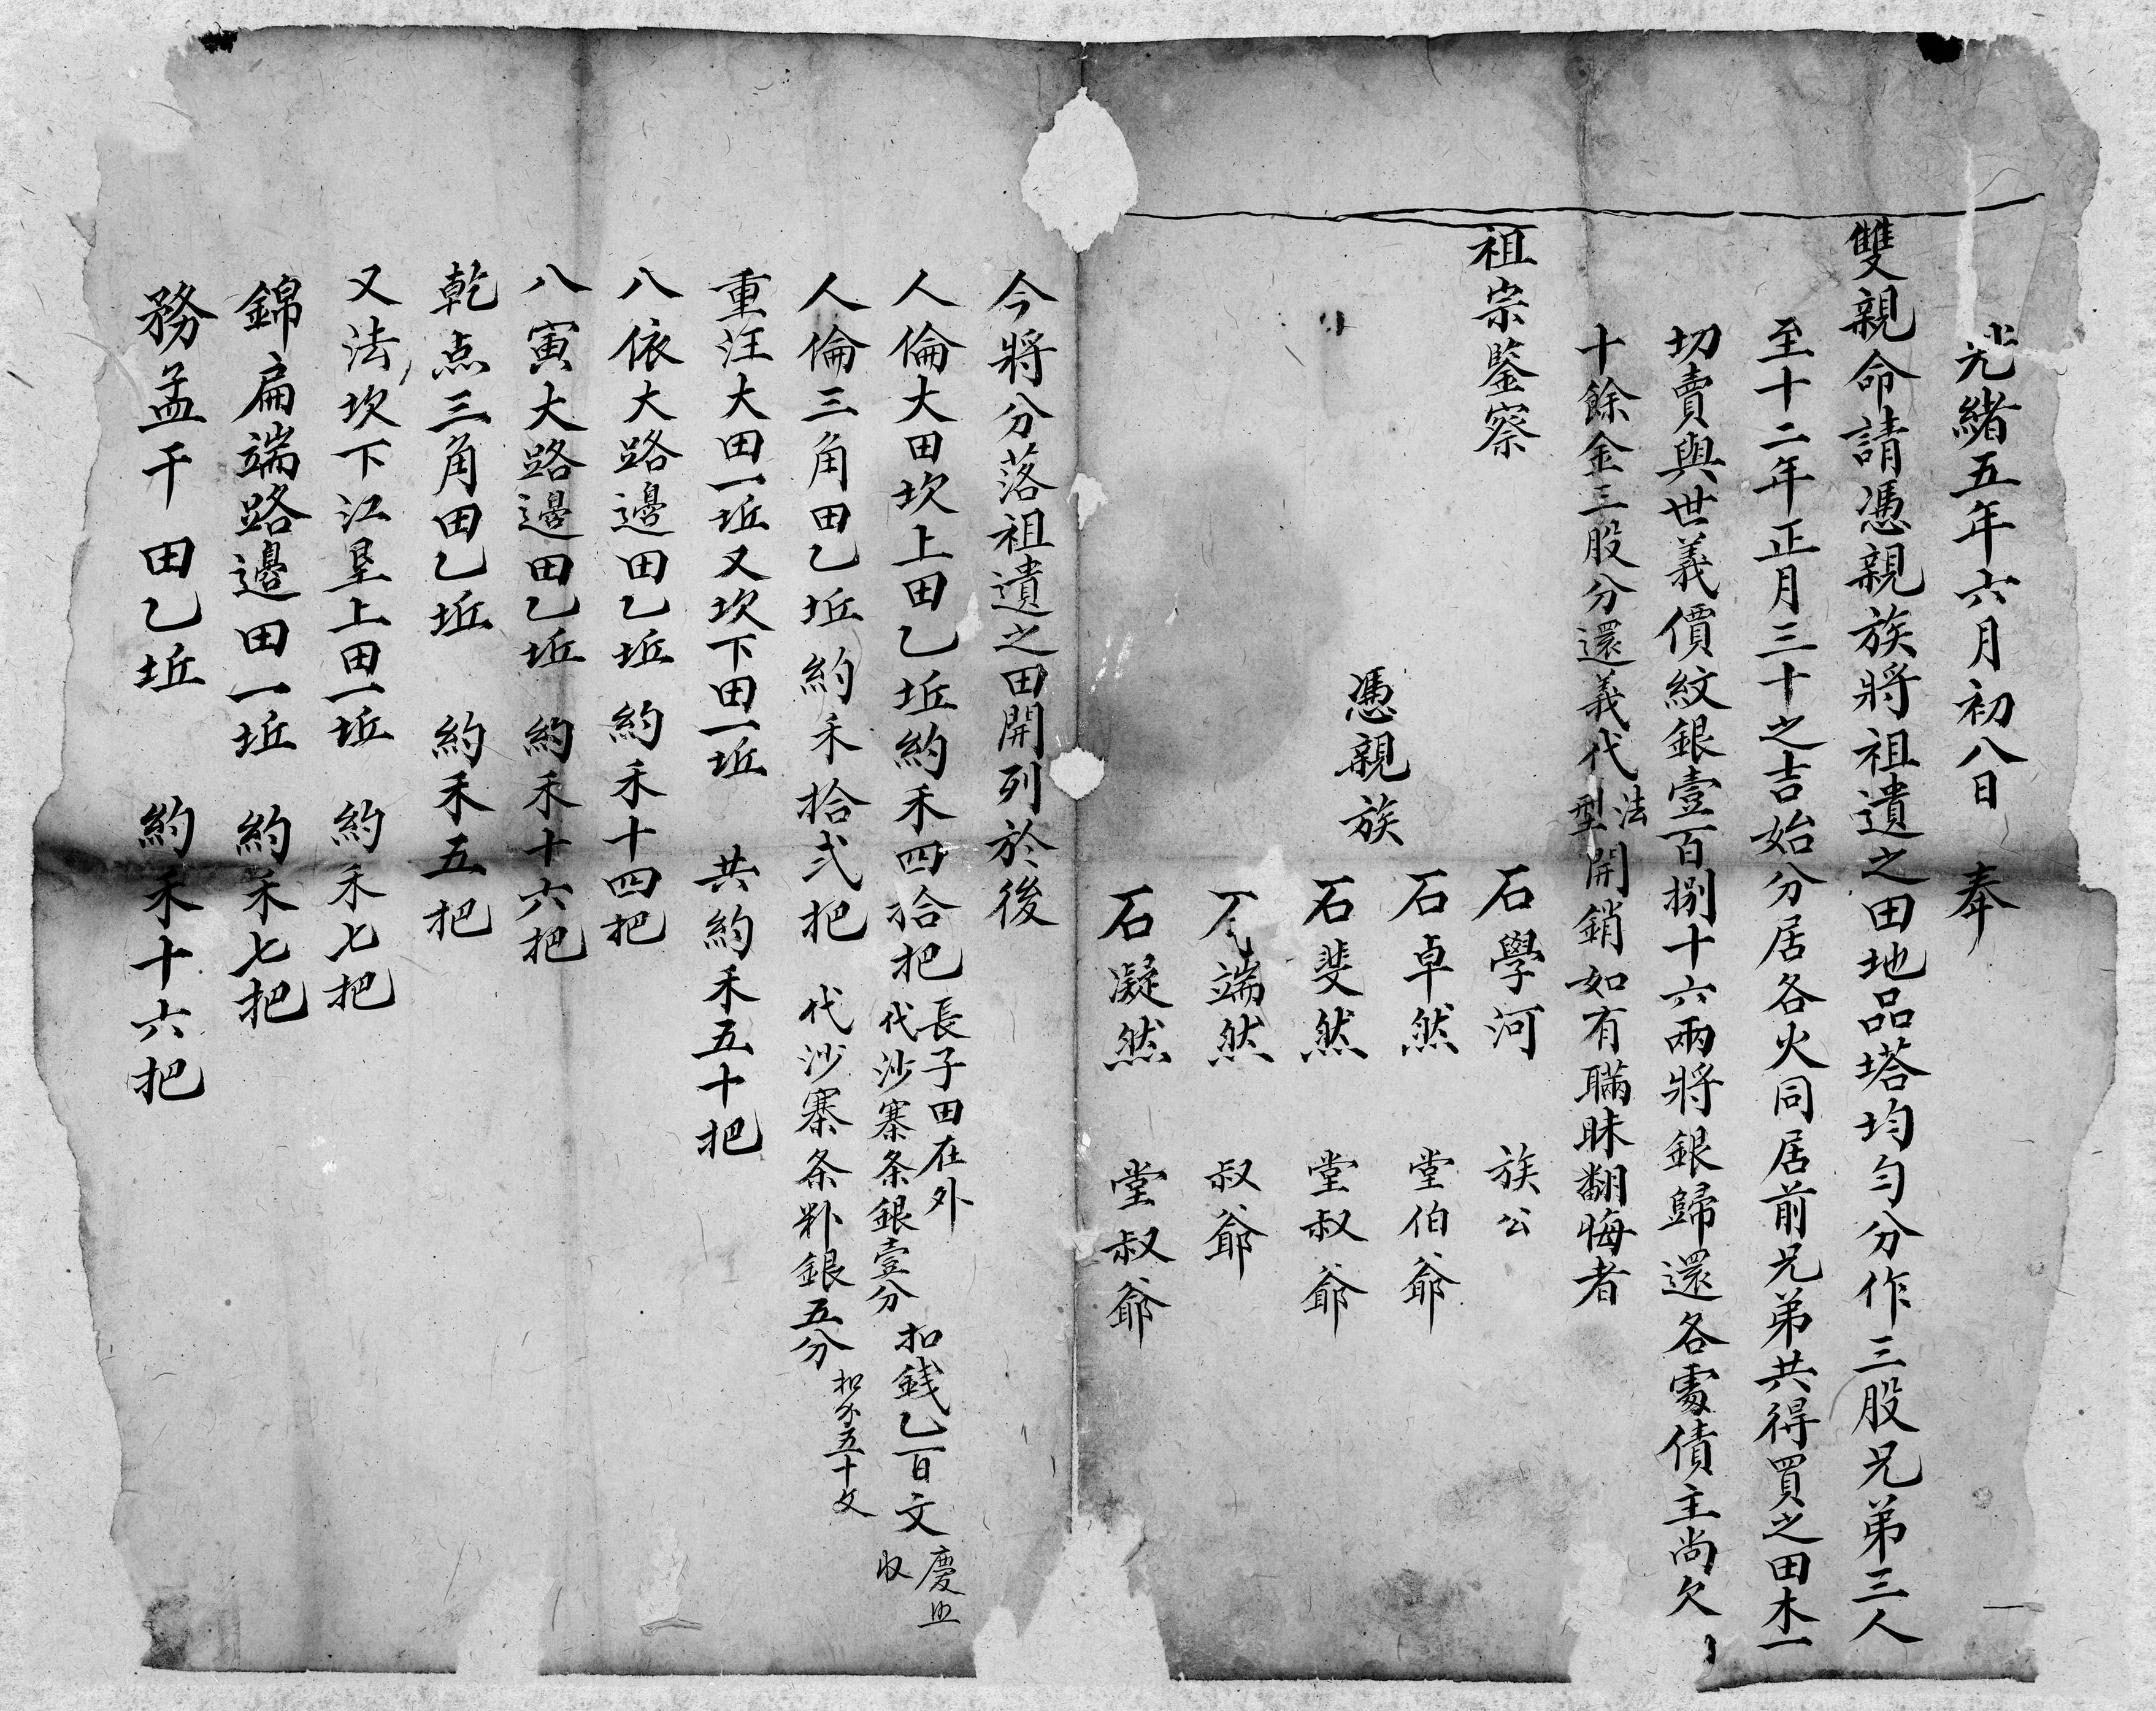 光緒五年六月初八日　奉
雙親命請憑親族將祖遺之田地品塔均勻分作三股兄弟三人
至十二年正月三十之吉始分居各火同居前兄弟共得買之田木一
切賣與世義價紋銀壹百捌十六兩將銀歸還各處債主尚欠
十餘金三股分還義代法型開銷如有瞞昧翻悔者
祖宗鑒察
憑親族
石學河　族公
石卓然　堂伯爺
石斐然　堂叔爺
石端然　叔爺
石凝然　堂叔爺
今將分落祖遺之田開列於後
人倫大田坎上田乙坵約禾四拾把　長子田在外　代沙寨条銀壹分　扣錢乙百文　慶　收
人倫三角田乙坵約禾拾弍把　代沙寨条銀五分　扣　五十文
重汪大田一坵又坎下田一坵　共約禾五十把
八依大路邊田乙坵　約禾十四把
八寅大路邊田乙坵　約禾十六把
乾点三角田乙坵　約禾五把
又法坎下江垦上田一坵　約禾七把
錦扁端路邊田一坵　約禾七把
務孟干田乙坵　約禾十六把